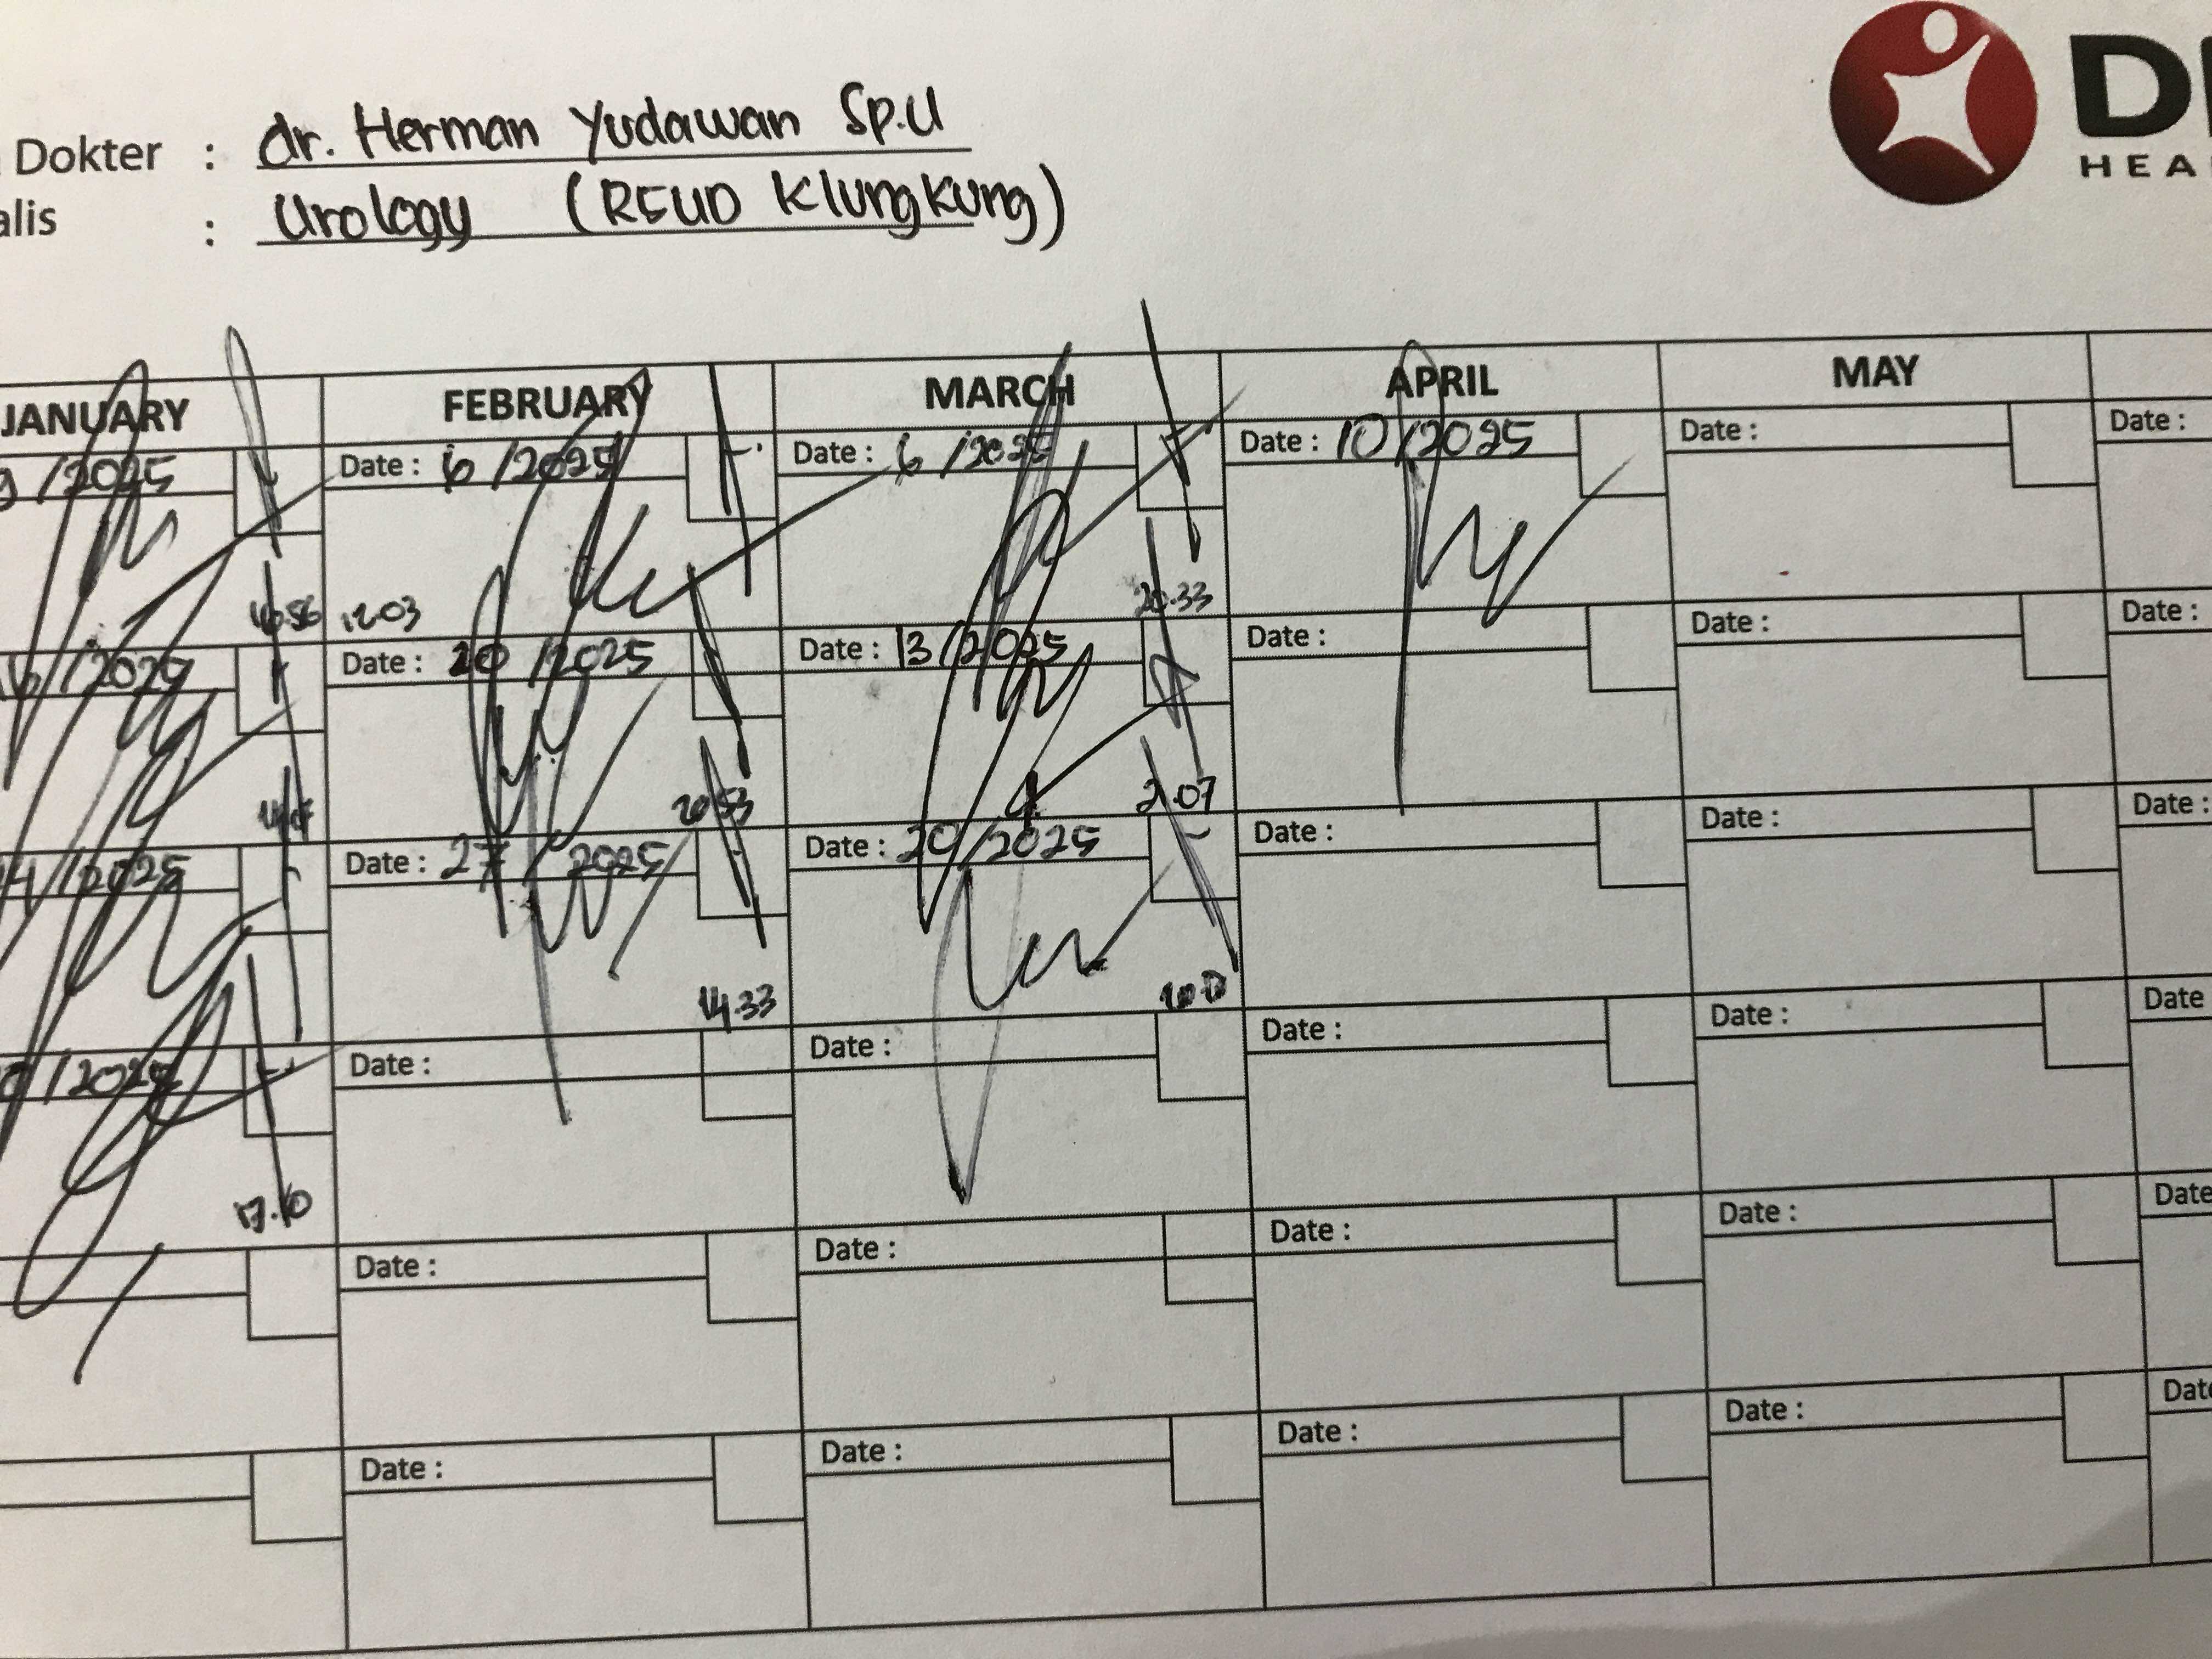 DE
HEA
Dokter : dr. Herman Yudawan Sp.U
alis : Urology (RSUD Klungkung)
JANUARY FEBRUARY MARCH APRIL MAY
9/2025 Date : 6/2025 Date : 6/2025 Date : 10/2025 Date : Date :
16.56 12.03 20.33
16/2025 Date : 20/2025 Date : 13/2025 Date : Date : Date :
20.53 2.07
/2025 Date : 27/2025 Date : 20/2025 Date : Date : Date :
14.33
/2025 Date : Date : Date : Date : Date
17.10
Date : Date : Date : Date : Date
Date : Date : Date : Date : Date